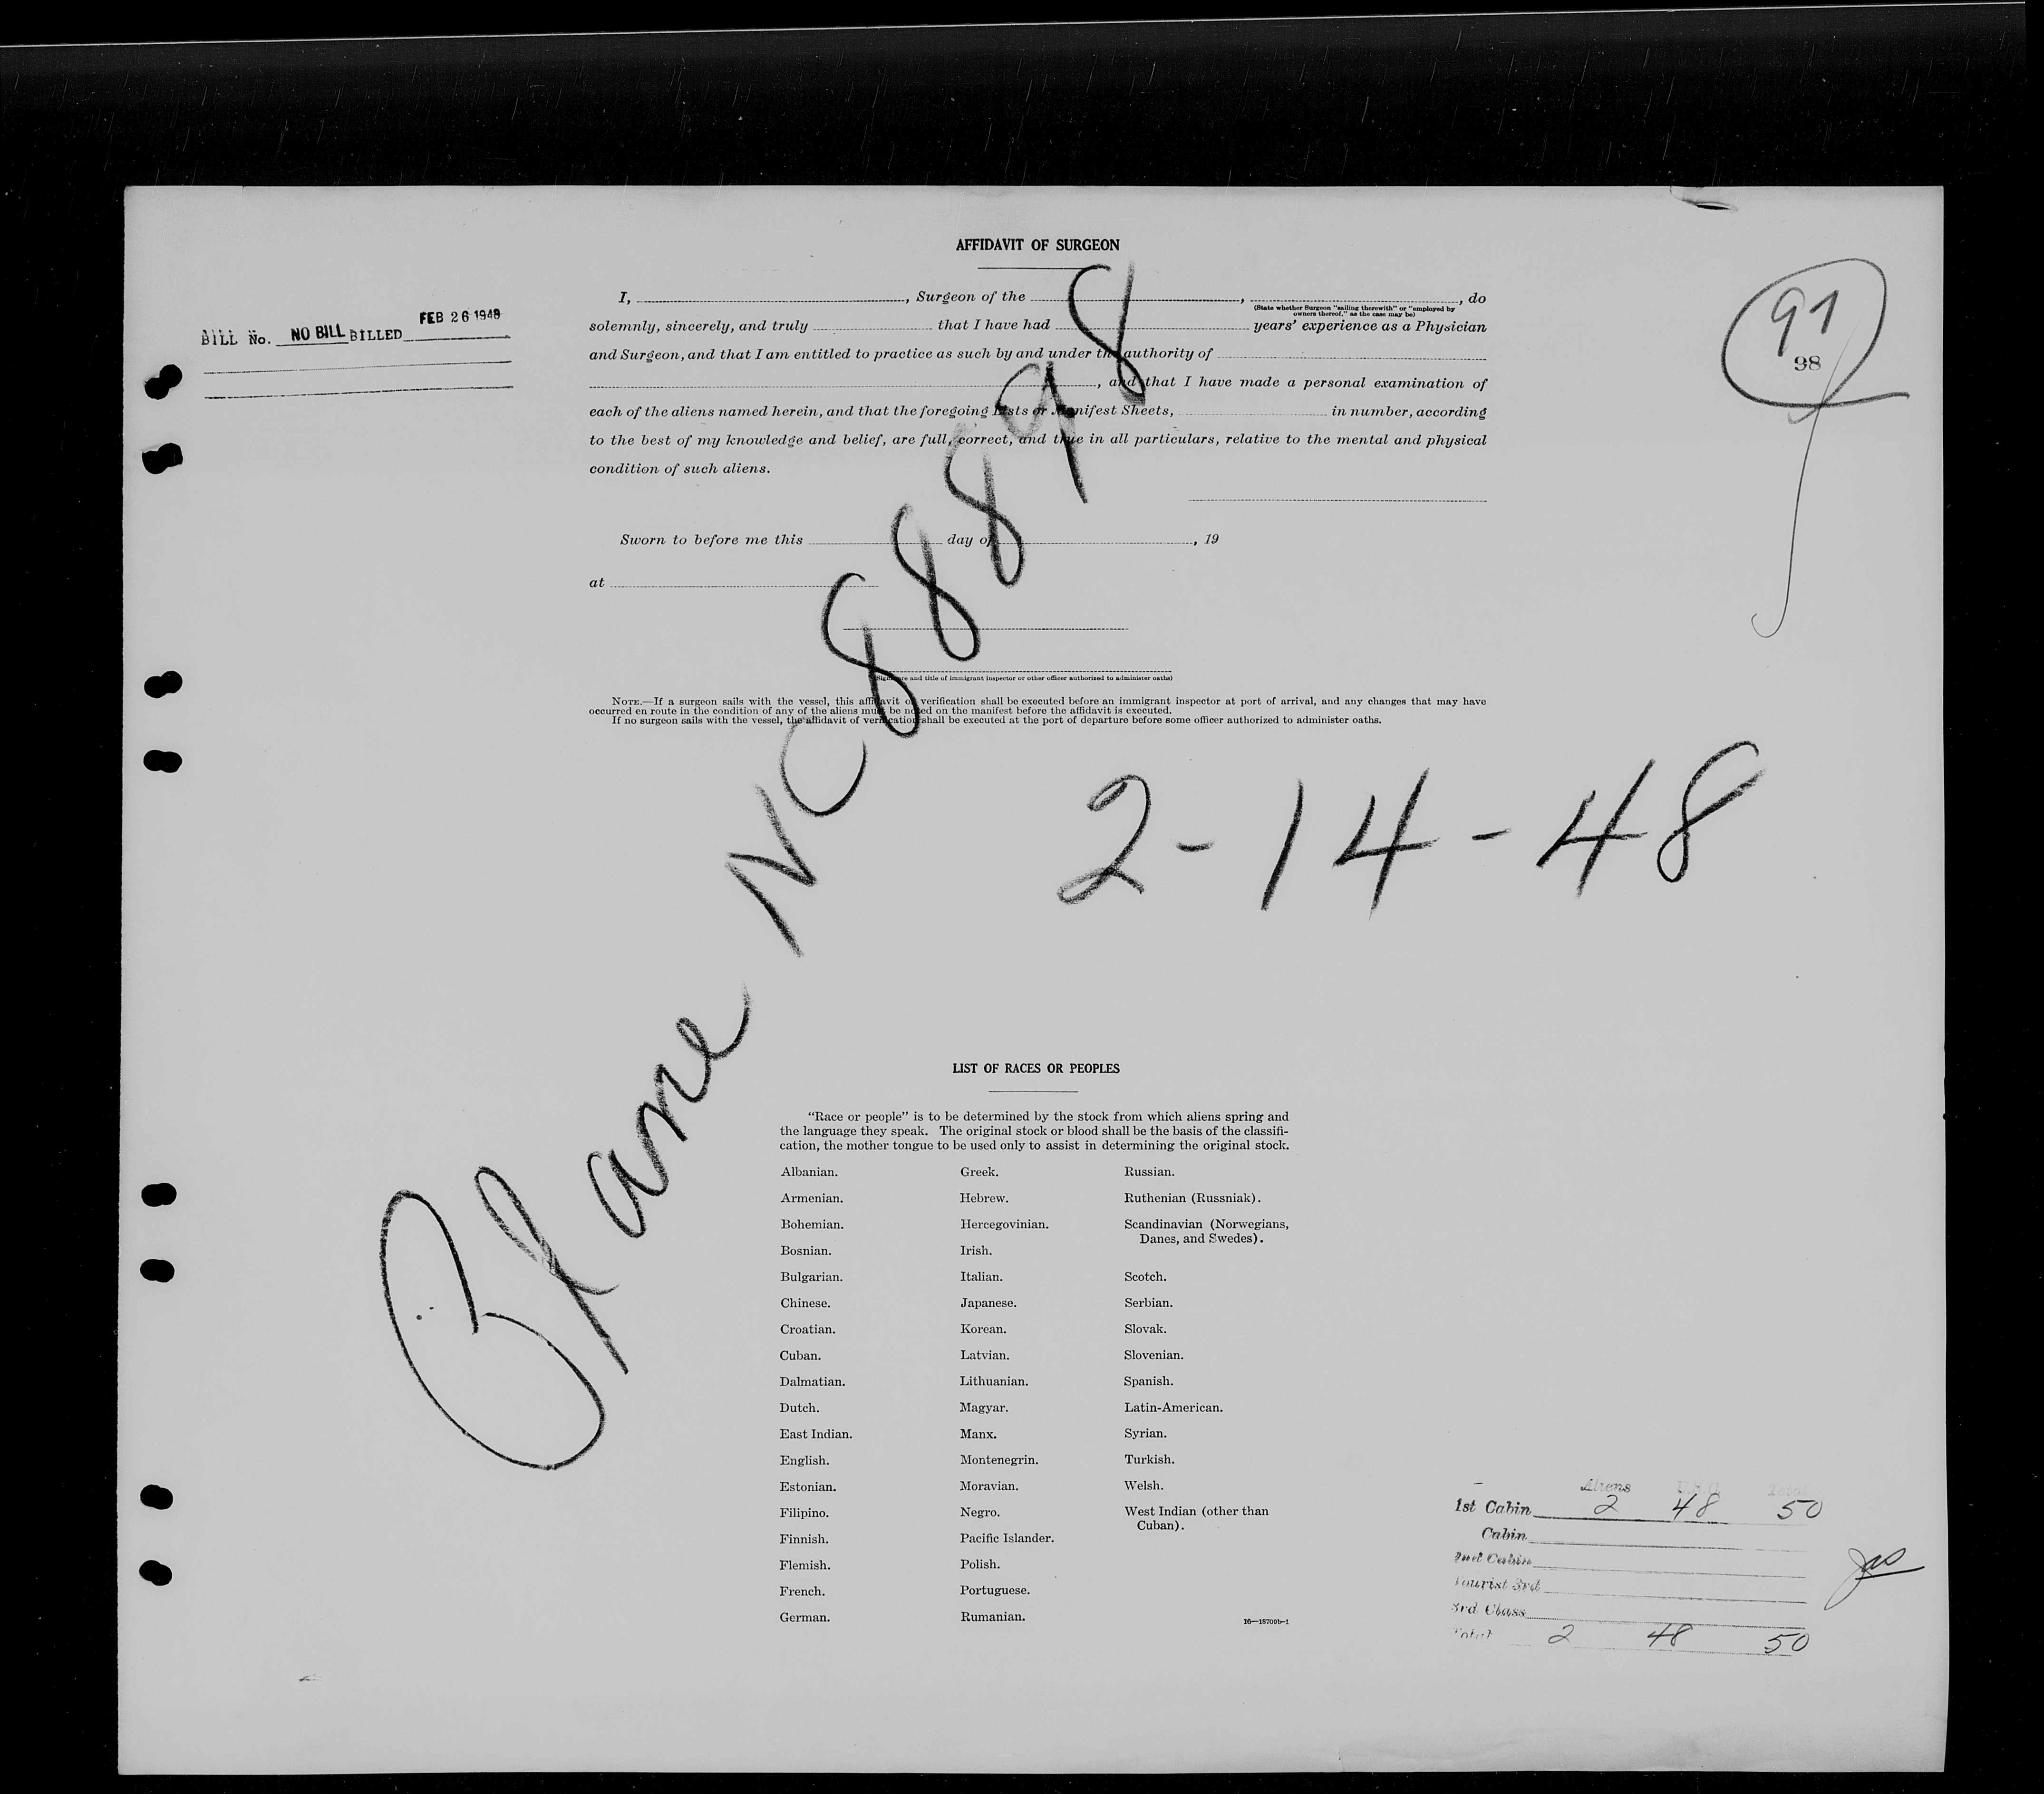 AFFIDAVIT OF SURGEON
I, , Surgeon of the , , do
(State whether Surgeon "sailing therewith" or "employed by
owners thereof," as the case may be)
solemnly, sincerely, and truly that I have had years' experience as a Physician
and Surgeon, and that I am entitled to practice as such by and under the authority of
, and that I have made a personal examination of
each of the aliens named herein, and that the foregoing Lists or Manifest Sheets, in number, according
to the best of my knowledge and belief, are full, correct, and true in all particulars, relative to the mental and physical
condition of such aliens.
Sworn to before me this day of , 19
at
(Signature and title of immigrant inspector or other officer authorized to administer oaths)
NOTE.—If a surgeon sails with the vessel, this affidavit or verification shall be executed before an immigrant inspector at port of arrival, and any changes that may have
occurred en route in the condition of any of the aliens must be noted on the manifest before the affidavit is executed.
If no surgeon sails with the vessel, the affidavit of verification shall be executed at the port of departure before some officer authorized to administer oaths.
BILL No. NO BILL BILLED FEB 26 1948
97
98
Plane NC 88898
2-14-48
LIST OF RACES OR PEOPLES
"Race or people" is to be determined by the stock from which aliens spring and
the language they speak. The original stock or blood shall be the basis of the classifi-
cation, the mother tongue to be used only to assist in determining the original stock.
Albanian.
Armenian.
Bohemian.
Bosnian.
Bulgarian.
Chinese.
Croatian.
Cuban.
Dalmatian.
Dutch.
East Indian.
English.
Estonian.
Filipino.
Finnish.
Flemish.
French.
German.
Greek.
Hebrew.
Hercegovinian.
Irish.
Italian.
Japanese.
Korean.
Latvian.
Lithuanian.
Magyar.
Manx.
Montenegrin.
Moravian.
Negro.
Pacific Islander.
Polish.
Portuguese.
Rumanian.
Russian.
Ruthenian (Russniak).
Scandinavian (Norwegians,
Danes, and Swedes).
Scotch.
Serbian.
Slovak.
Slovenian.
Spanish.
Latin-American.
Syrian.
Turkish.
Welsh.
West Indian (other than
Cuban).
16—18700b-1
Aliens Total
1st Cabin 2 48 50
Cabin
2nd Cabin
Tourist 3rd
3rd Class
Total 2 48 50